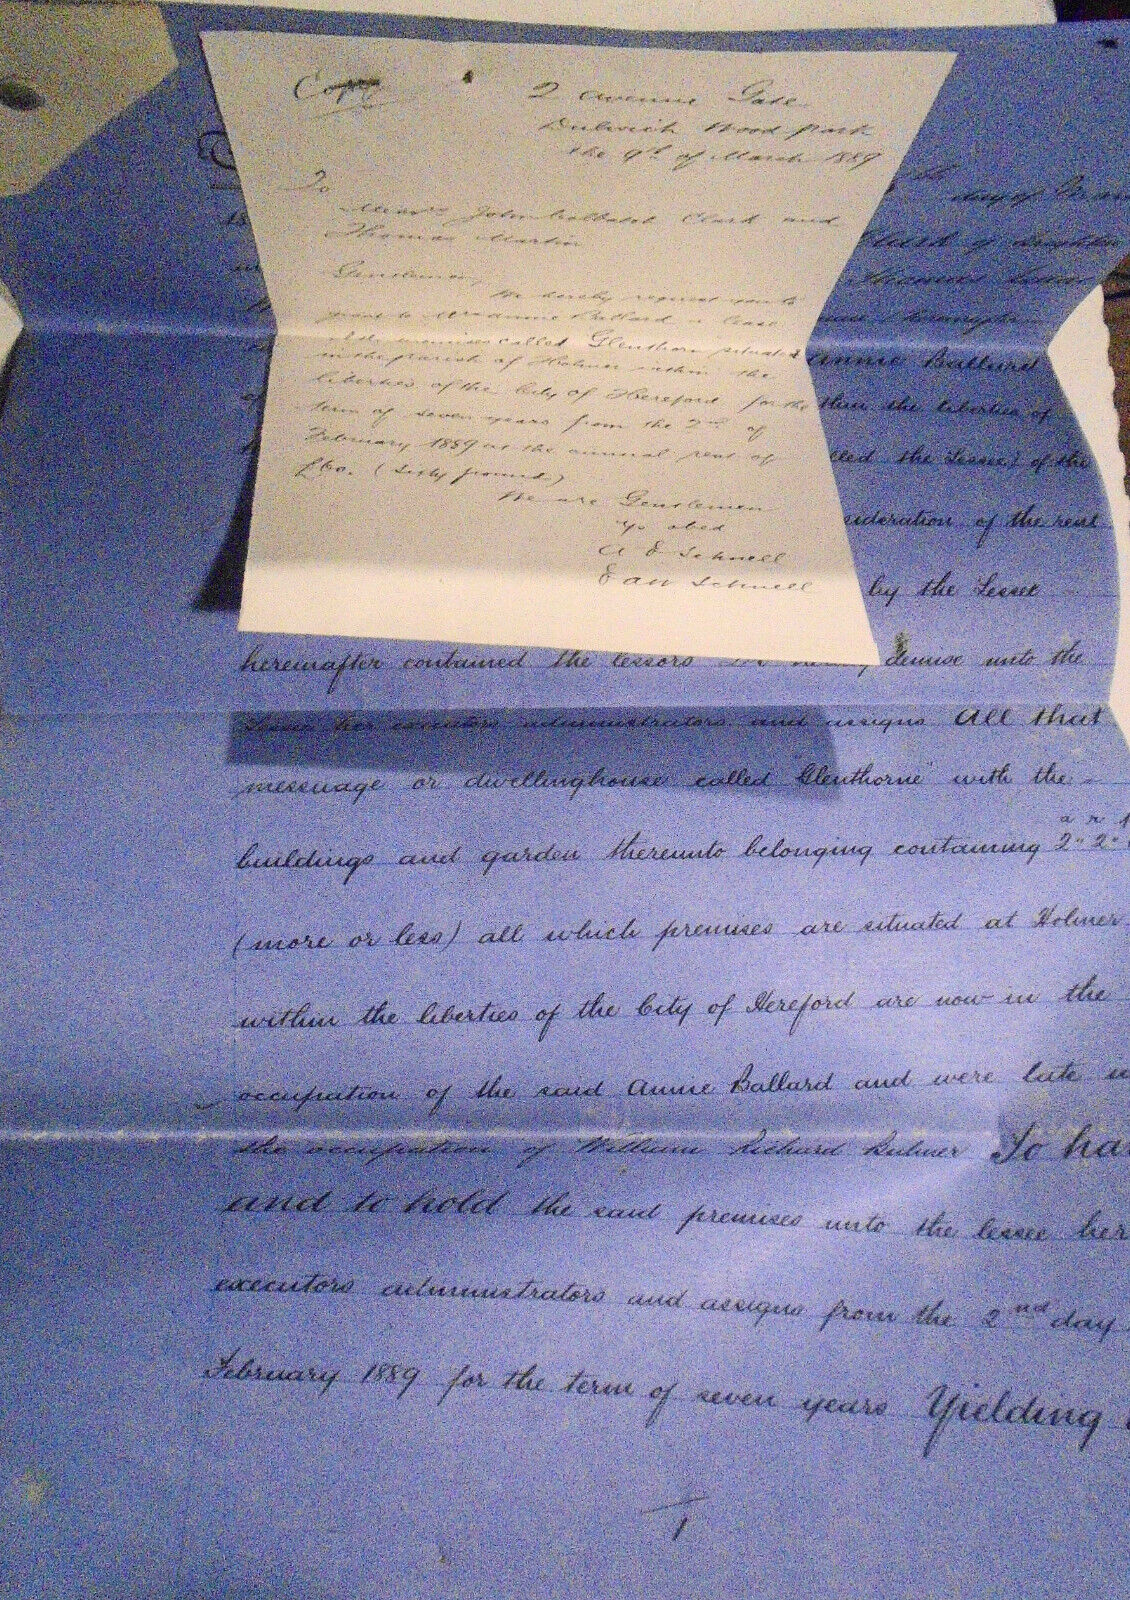 Copy
2 Avenue Gate
Dulwich Wood Park
the 9th of March 1889
To
Messrs John Clark and
Thomas Martin
Gentlemen,
We hereby request you to
grant to Mrs Annie Ballard a lease
of the premises called Glenthorn situated
in the parish of Holmer within the
liberties of the City of Hereford for the
term of seven years from the 2nd of
February 1889 at the annual rent of
£60. (Sixty pounds)
We are Gentlemen
Yr obed
A E Schnell
E AW Schnell
day of
Clark of
Thomas
Annie Ballard
the liberties of
lled the Lessee) of the
sideration of the rent
by the Lessee
hereinafter contained the lessors demise unto the
Lessee her executors administrators and assigns All that
messuage or dwellinghouse called "Glenthorne" with the
a r
buildings and garden thereunto belonging containing 2" 2"
(more or less) all which premises are situated at Holmer
within the liberties of the City of Hereford are now in the
occupation of the said Annie Ballard and were late
the occupation of William Richard Bulmer To ha
and to hold the said premises unto the lessee her
executors administrators and assigns from the 2nd day
February 1889 for the term of seven years Yielding
1